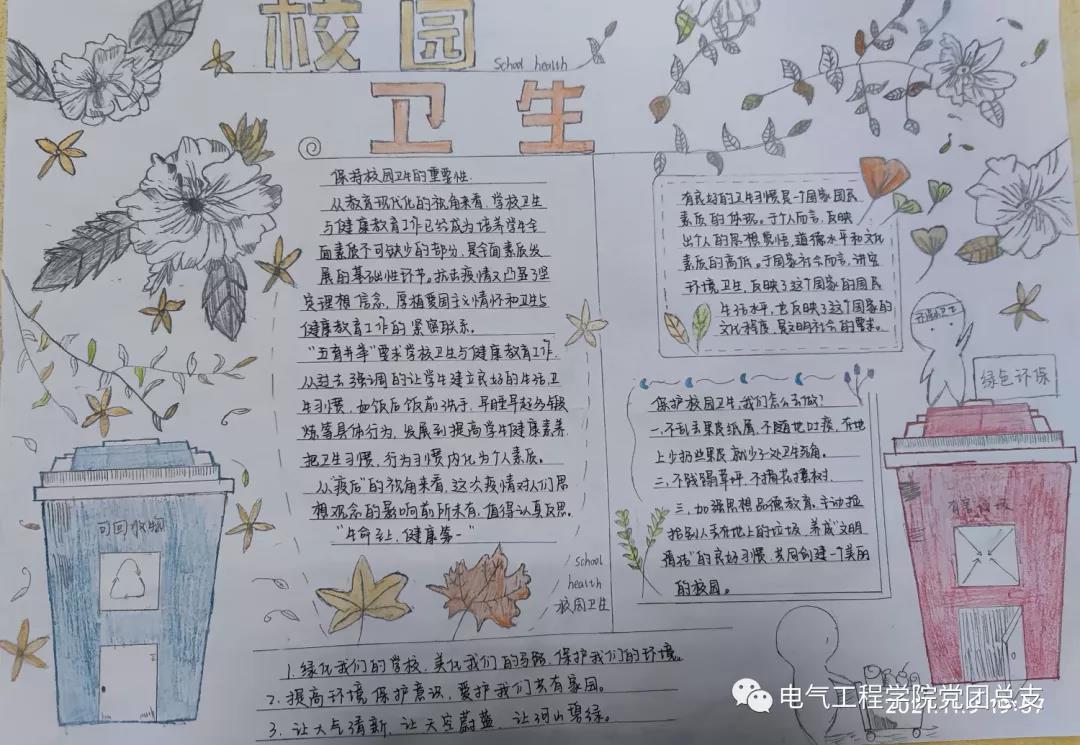 校园
School health
卫生
保持校园卫生的重要性
从教育现代化的视角来看,学校卫生
与健康教育工作已经成为培养学生全
面素质不可缺少的部分,是全面素质发
展的基础性环节。抗击疫情又凸显了坚
定理想信念,厚植爱国主义情怀和卫生与
健康教育工作的紧密联系。
"五育并举"要求学校卫生与健康教育工作
从过去强调的让学生建立良好的生活卫
生习惯,如饭后饭前洗手,早睡早起多锻
炼等具体行为,发展到提高学生健康素养
把卫生习惯,行为习惯内化为个人素质。
从"疫后"的视角来看,这次疫情对人们思
想观念的影响前所未有,值得认真反思。
"生命至上,健康第一"
有良好的卫生习惯是一个国家国民
素质的体现。于个人而言,反映
出个人的思想觉悟,道德水平和文化
素质的高低。于国家社会而言,讲究
环境卫生,反映了这个国家的国民
生活水平,也反映了这个国家的
文化程度,是文明社会的需求。
绿色环保
保护校园卫生,我们怎么去做?
一.不乱丢果皮纸屑,不随地吐痰,在地
上少扔些果皮,就少一处卫生死角。
二.不践踏草坪,不摘花摧树
三.加强思想品德教育,主动捡
拾别人丢在地上的垃圾,养成"文明
清洁"的良好习惯,共同创建一个美丽
的校园。
可回收物
有害垃圾
school
health
校园卫生
1.绿化我们的学校,美化我们的马路,保护我们的环境。
2.提高环境保护意识,爱护我们共有家园。
3.让大气清新,让天空蔚蓝,让河山碧绿。
电气工程学院党团总支